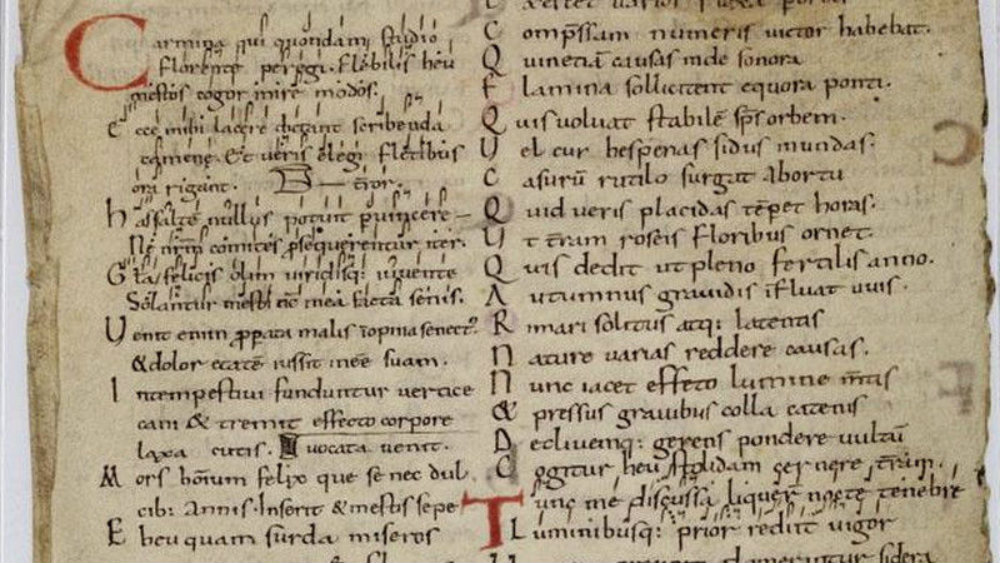 Carmina qui quondam studio
florente peregi. flebilis heu
mestos cogor inire modos.
Ecce mihi lacere dictant scribenda
camene. Et ueris elegi fletibus
ora rigant.
has saltē nullus potuit puincere
Ne nr̄m comites ꝑsequerentur iter.
Gl̄a felicis olim uiridisq: iuuente
Solantur mesti nc̄ mea facta senis.
Uenit enim ꝓpata malis īopina senect᷒
&dolor etatē iussit inēe suam.
Intempestiui funduntur uertice
cani & tremit effecto corpore
laxa cutis. uocata uenit.
Mors hominū felix que se nec dul
cib: Annis. Inserit &mestis sepe
Eheu quam surda miseros
Comp̄ssam numeris uictor habebat.
Quinetiā causas inde sonora
Flamina sollicitent equora ponti.
Quis uoluat stabilē sp̄s orbem.
Uel cur hesperias sidus in undas.
Casurū rutilo surgat Abortu
Quid ueris placidas tēpet horas.
Ut t̄ram roseis floribus ornet.
Quis dedit ut pleno fertilis anno.
Autumnus grauidis īfluat uuis.
Rimari solitus atq: latentis
Nature uarias reddere causas.
Nunc iacet effeto lumine m̄tis
& pressus grauibus colla catenis
Decliuemq: gerens pondere uultū
Cogitur heu stolidam cernere t̄ram.
Tunc me discussa liquer̄ nocte tenebre
Luminibusq: prior rediit uigor